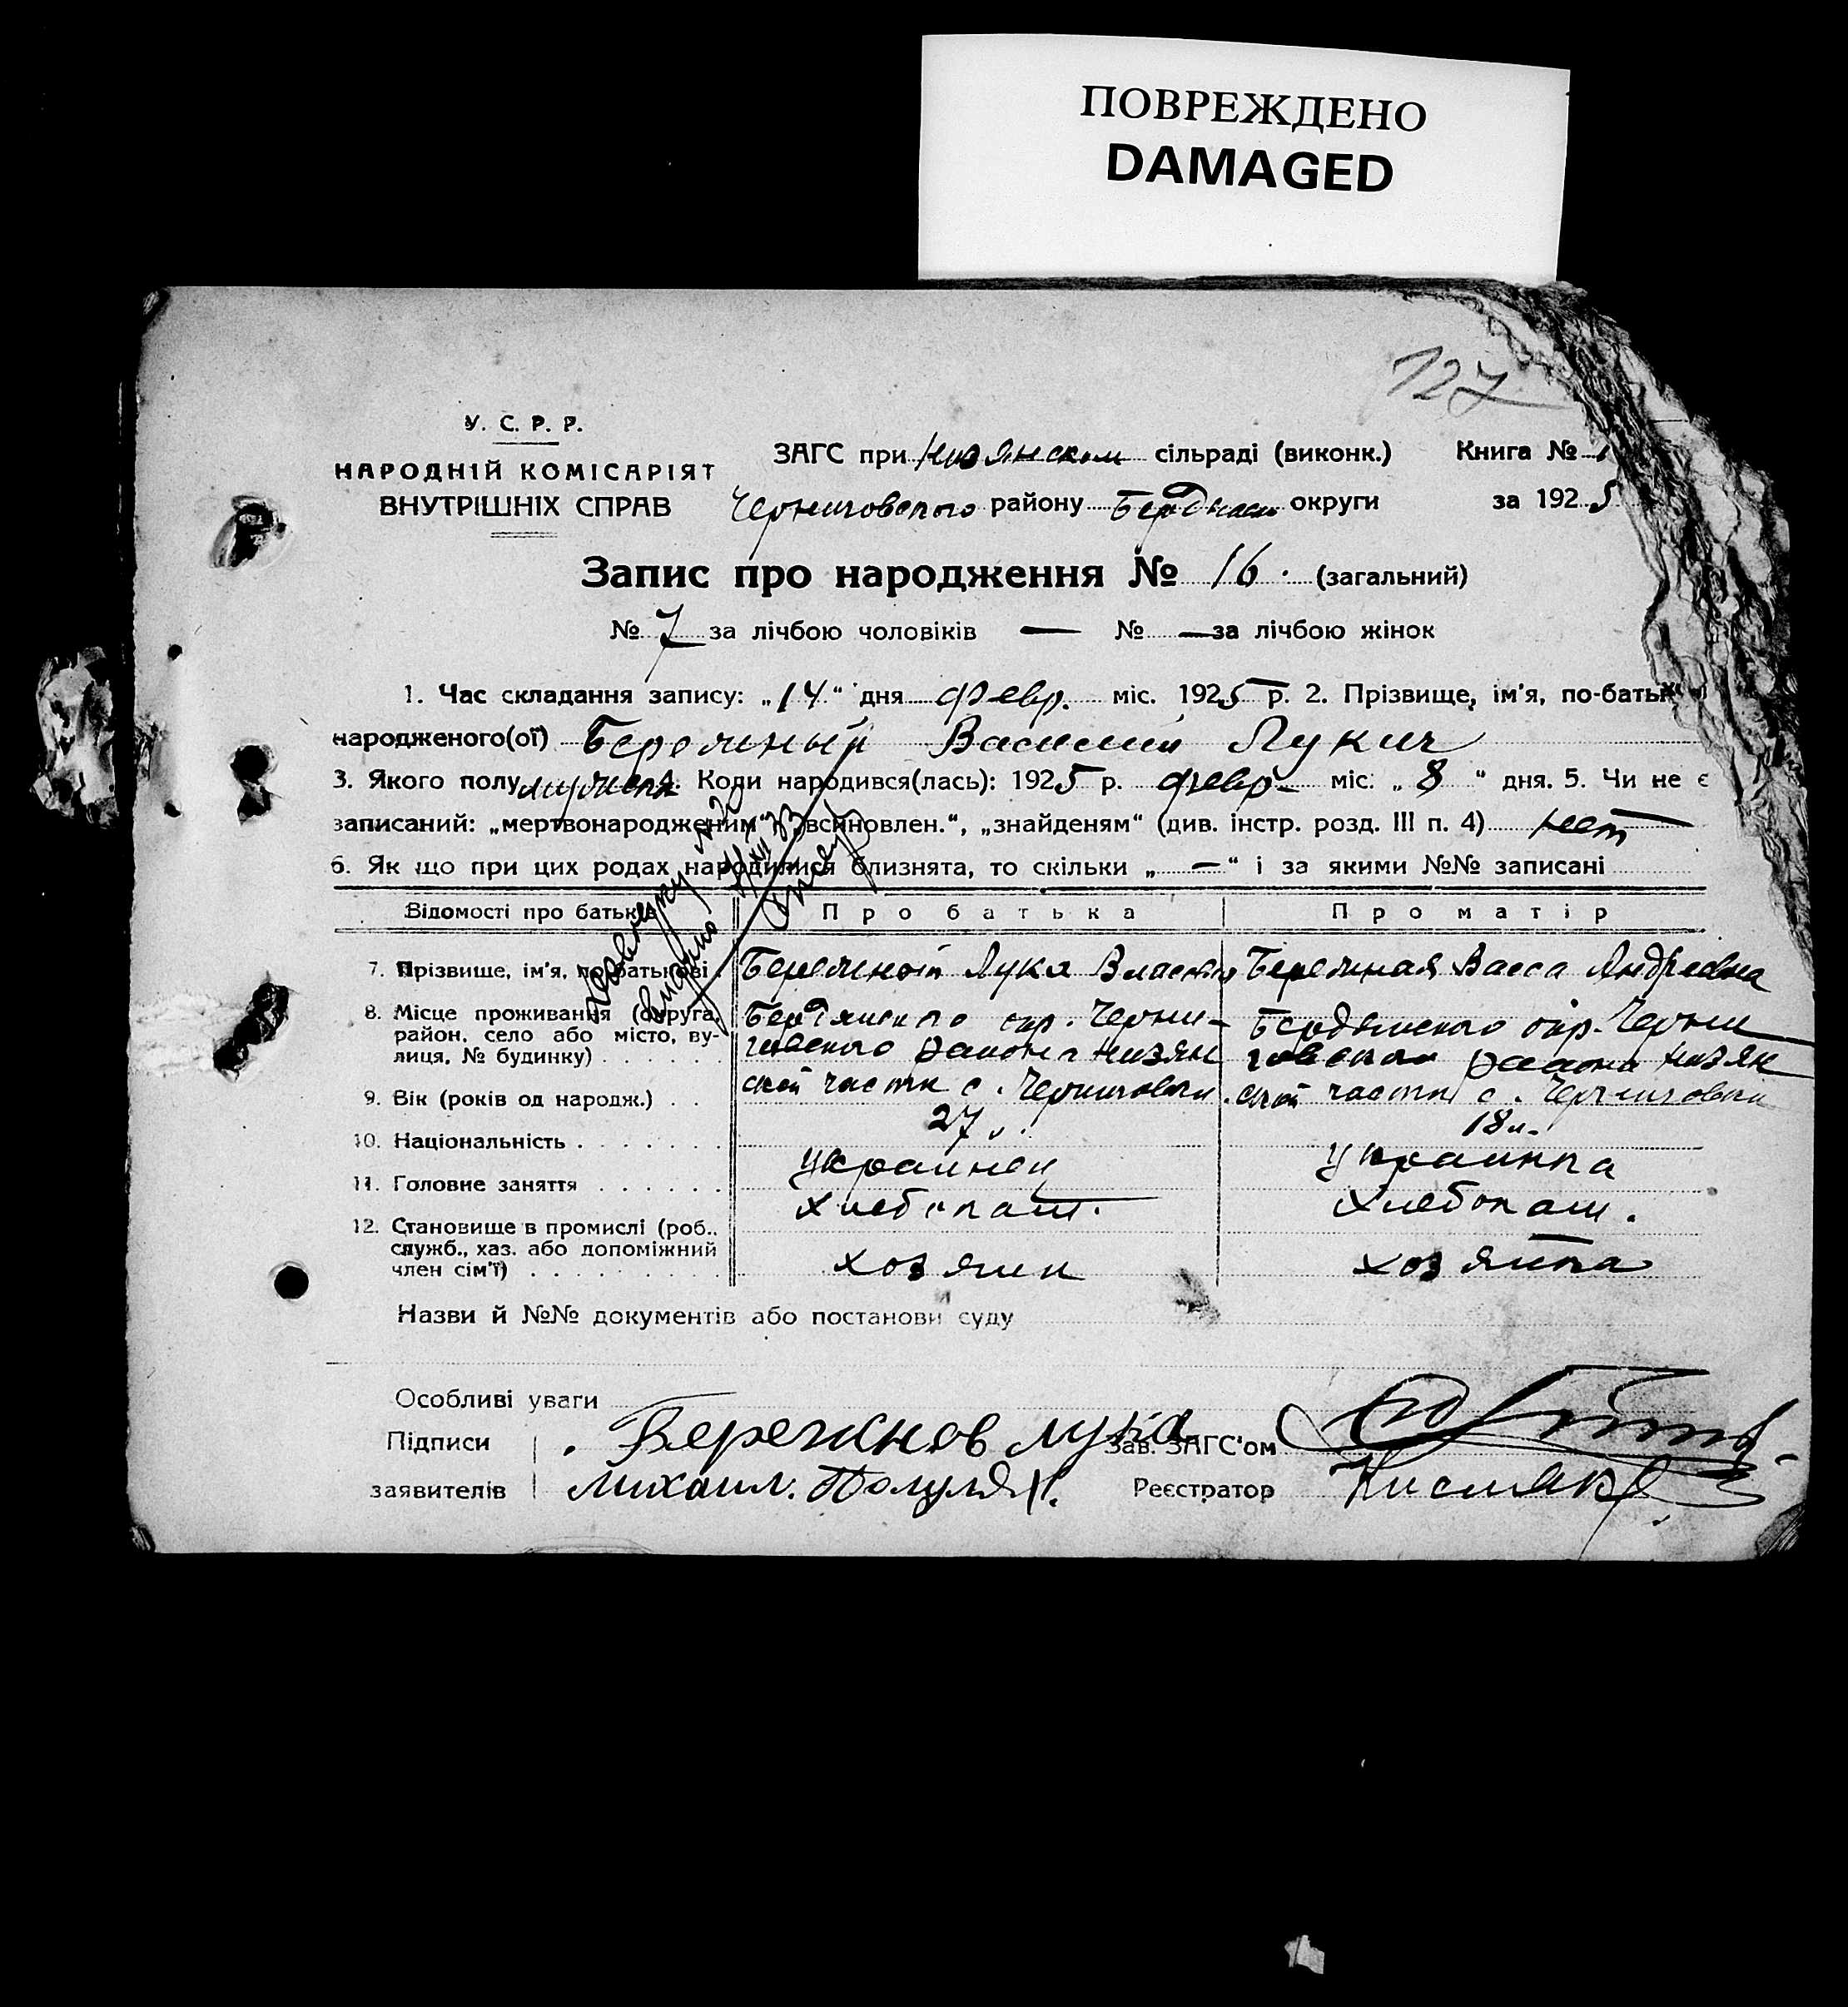 ПОВРЕЖДЕНО
DAMAGED
127
У. С. Р. Р.
НАРОДНІЙ КОМІСАРІЯТ
ВНУТРІШНІХ СПРАВ
ЗАГС при Низянском сільраді (виконк.) Книга № 1
Черниговского району Бердянск округи за 1925
Запис про народження № 16. (загальний)
№ 7 за лічбою чоловіків — № — за лічбою жінок
1. Час складання запису: „14" дня февр. міс. 1925 р. 2. Прізвище, ім'я, по-батьк
народженого(ої) Бережный Василий Лукич
3. Якого полу мужского 4. Коли народився(лась): 1925 р. февр. міс. „8" дня. 5. Чи не є
записаний: „мертвонародженим", „всиновлен.", „знайденям" (див. інстр. розд. III п. 4) нет
6. Як що при цих родах народилися близнята, то скільки „—" і за якими №№ записані
Відомості про батьків Про батька Про матір
7. Прізвище, ім'я, по батькові. Бережной Лука Власов Бережная Васса Андреевна
8. Місце проживання (округа, район, село або місто, вулиця, № будинку) Бердянского окр. Черни-
говского района Низян
ской части с. Черниговки
Бердянского окр. Черни
говского района Низян
ской части с. Черниговки
9. Вік (років од народж.) 27 л. 18 л.
10. Національність украинец украинка
11. Головне заняття хлебопаш. хлебопаш.
12. Становище в промислі (роб., служб., хаз. або допоміжний член сім'ї) хозяин хозяйка
Назви й №№ документів або постанови суду
Особливі уваги
Підписи Бережнов Лука Зав. ЗАГС'ом
заявителів Михаил. Реєстратор Кисляк